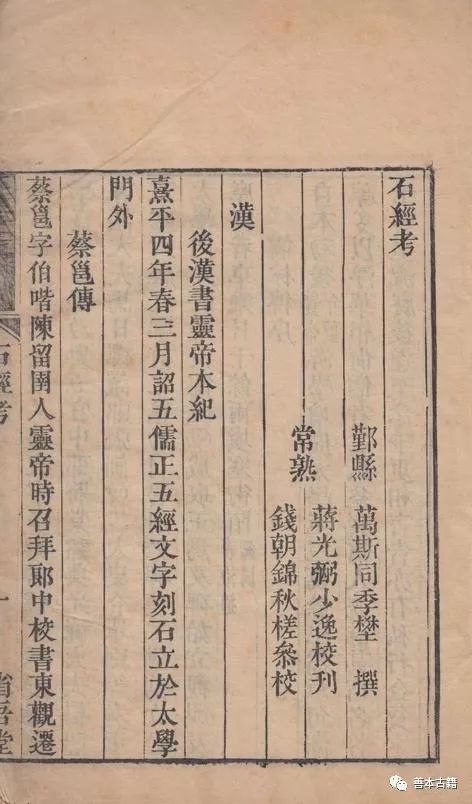 石經考
鄞縣 萬斯同季壄 撰
常熟
蔣光弼少逸校刊
錢朝錦秋槎叅校
漢
後漢書靈帝本紀
熹平四年春三月詔五儒正五經文字刻石立於太學
門外
蔡邕傳
蔡邕字伯喈陳留圉人靈帝時召拜郎中校書東觀遷
石經考
一
省吾堂
善本古籍